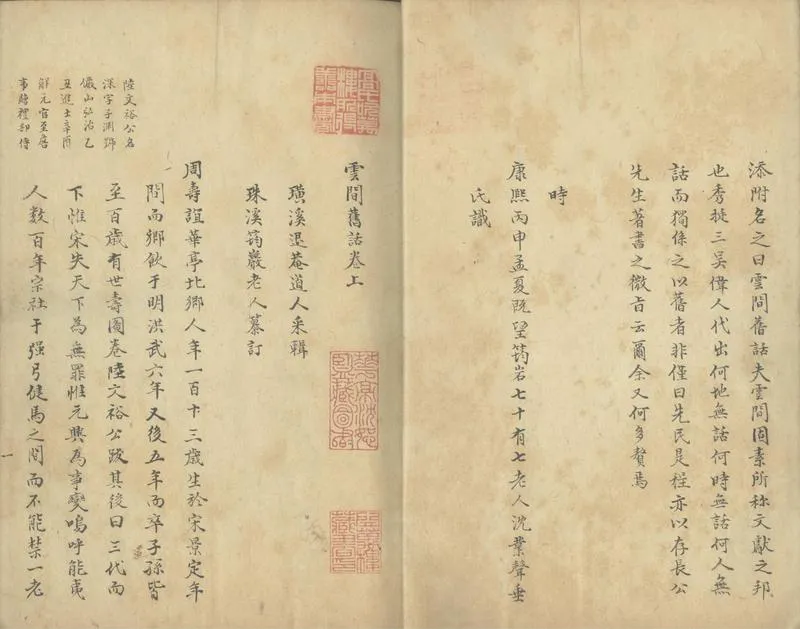 添附名之曰雲間舊話夫雲間固素所称文獻之邦
也秀挺三吴偉人代出何地無話何時無話何人無
話而獨係之以舊者非僅曰先民是程亦以存長公
先生著書之微旨云爾余又何多贅焉
時
康熙丙申孟夏既望筠岩七十有七老人沈業聲垂
氏識
雲間舊話卷上
璜溪退菴道人采輯
珠溪筠巖老人纂訂
周壽誼華亭北鄉人年一百十三歲生於宋景定年
間而鄉飲于明洪武六年又後五年而卒子孫皆
至百歲有世壽圖卷陸文裕公跋其後曰三代而
下惟宋失天下為無罪惟元興為事變嗚呼能夷
人數百年宗社于强弓健馬之間而不能禁一老
陸文裕公名
深字子淵號
儼山弘治乙
丑進士辛酉
解元官至詹
事贈禮部侍
一